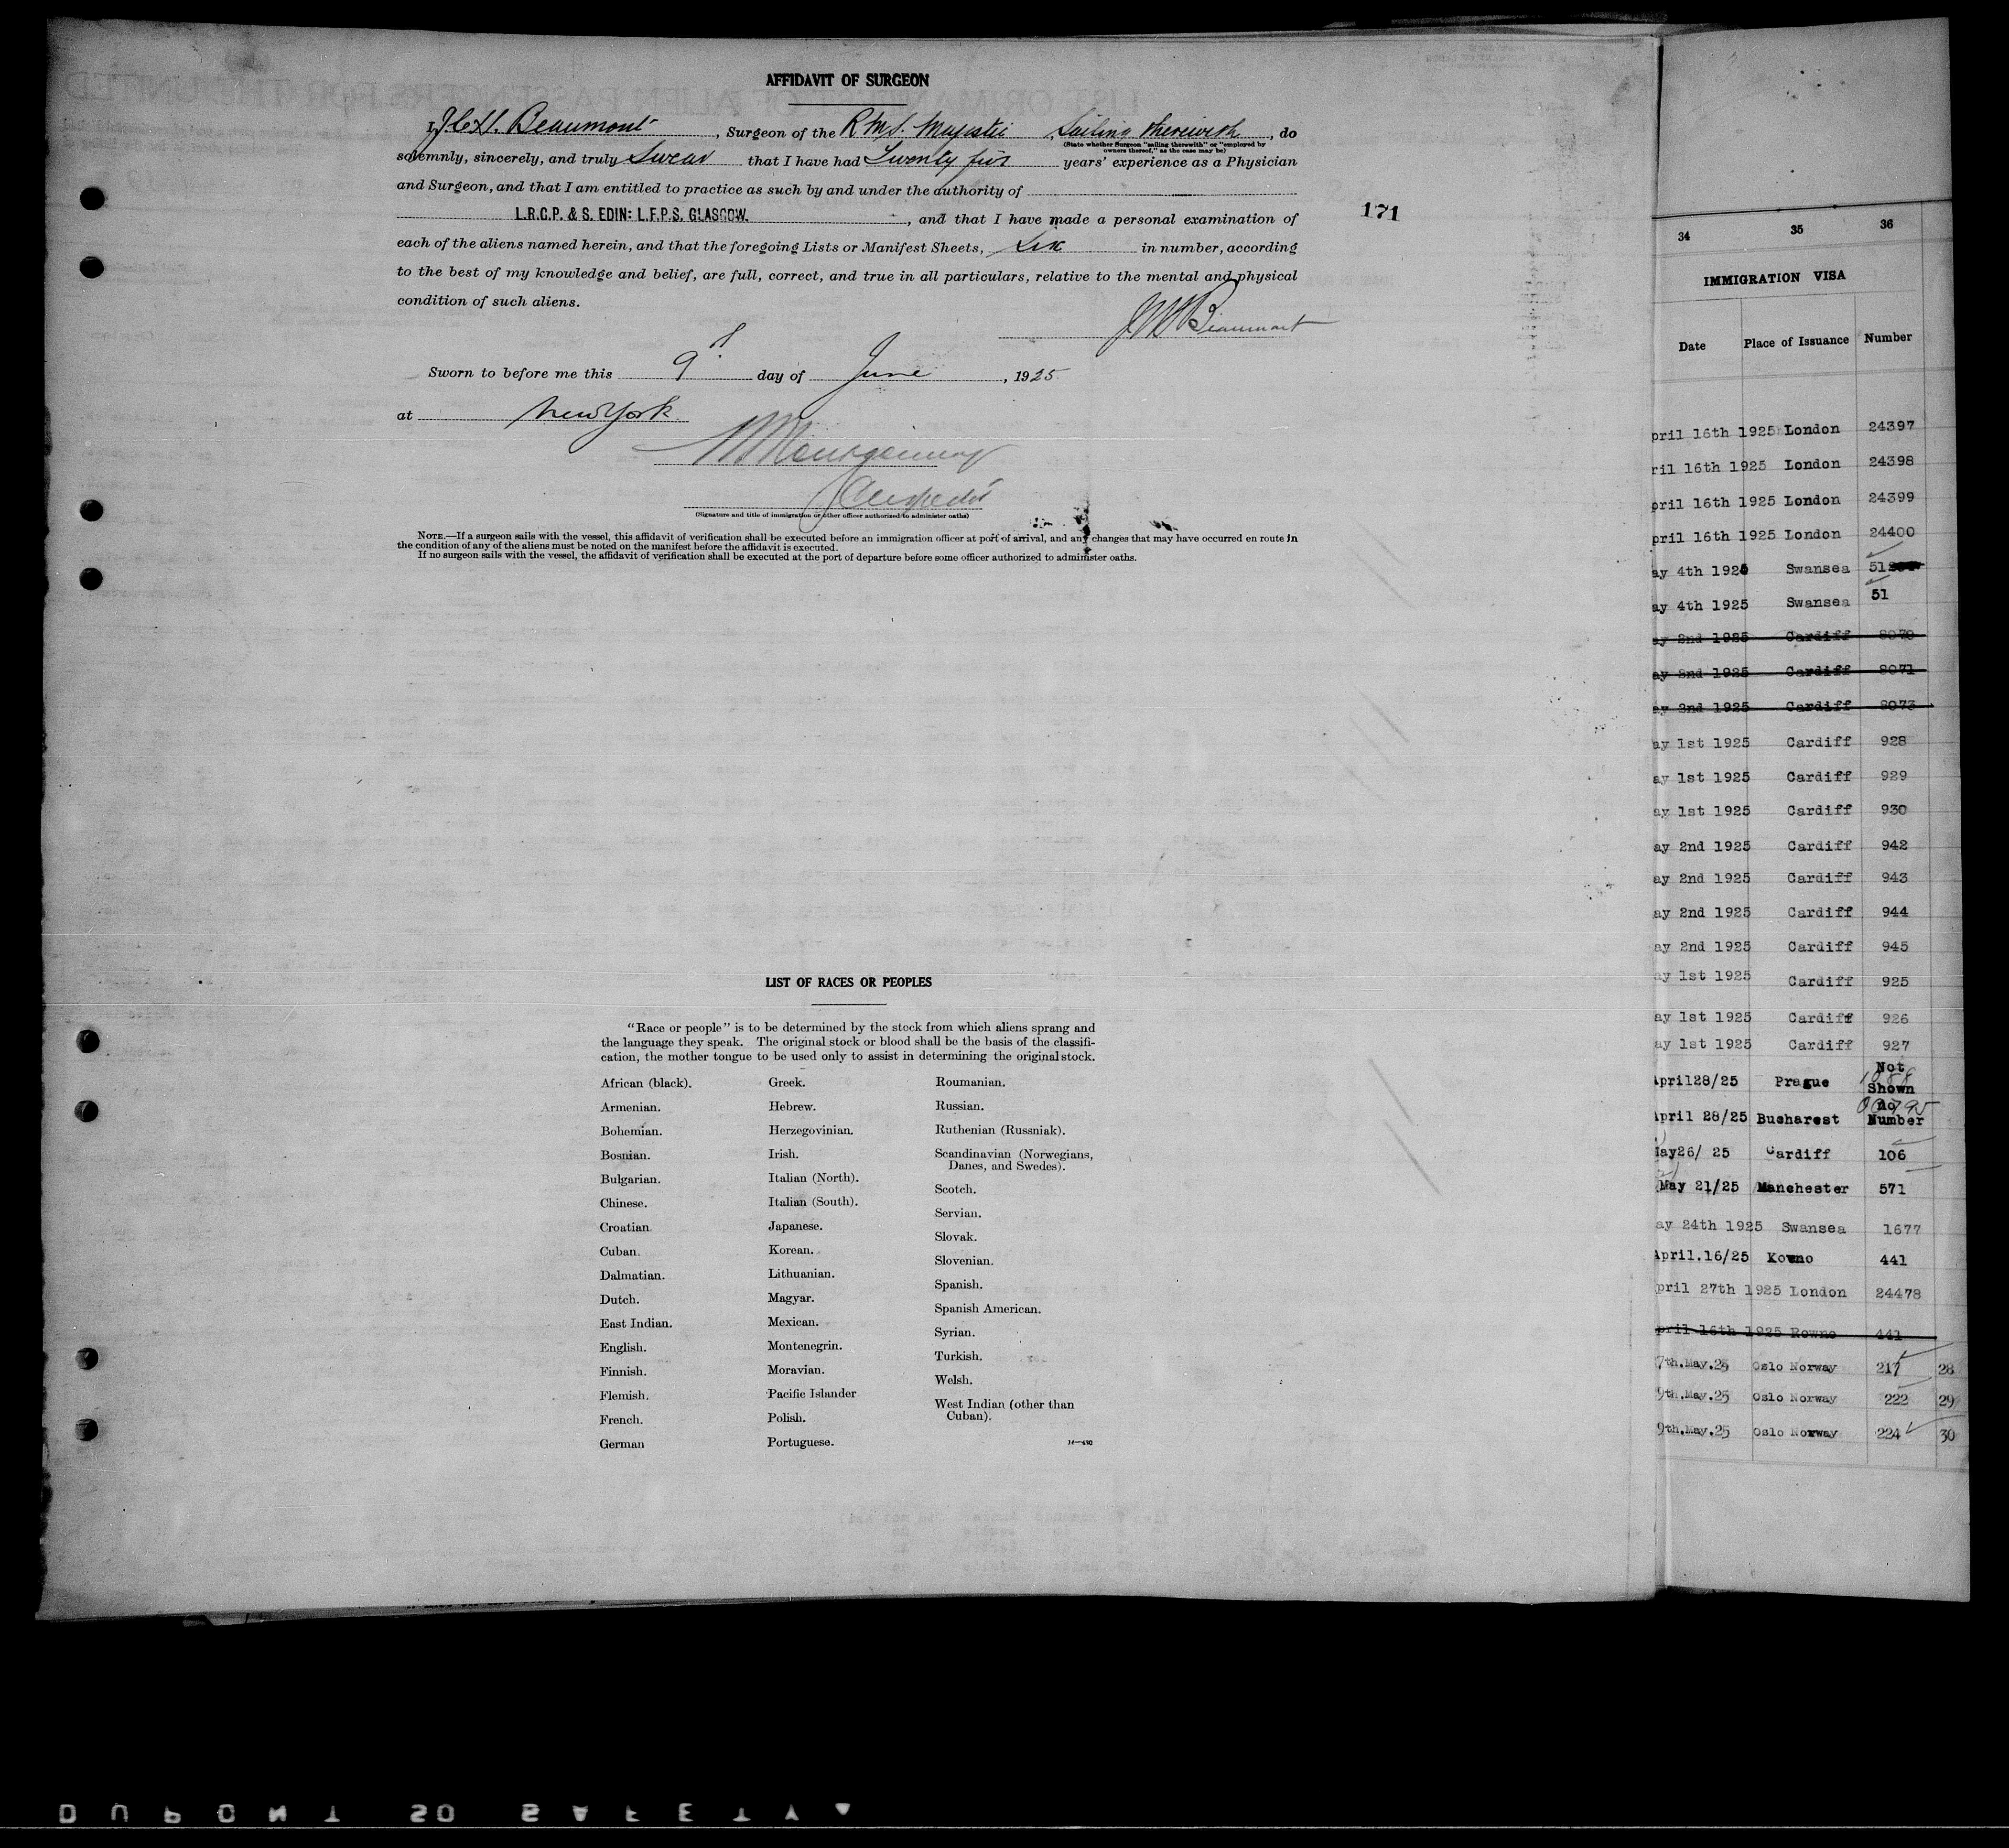 AFFIDAVIT OF SURGEON
I, Beaumont, Surgeon of the R.M.S. Majestic Sailing therewith, do
(State whether Surgeon "sailing therewith" or "employed by
owners thereof," as the case may be)
solemnly, sincerely, and truly Swear that I have had Twenty five years' experience as a Physician
and Surgeon, and that I am entitled to practice as such by and under the authority of
L.R.C.P. & S. EDIN: L.F.P.S. GLASGOW. , and that I have made a personal examination of
171
each of the aliens named herein, and that the foregoing Lists or Manifest Sheets, Six in number, according
to the best of my knowledge and belief, are full, correct, and true in all particulars, relative to the mental and physical
condition of such aliens.
Beaumont
Sworn to before me this 9 day of June, 1925
at New York
Montgomery
(Signature and title of immigration or other officer authorized to administer oaths)
NOTE.—If a surgeon sails with the vessel, this affidavit of verification shall be executed before an immigration officer at port of arrival, and any changes that may have occurred en route in
the condition of any of the aliens must be noted on the manifest before the affidavit is executed.
If no surgeon sails with the vessel, the affidavit of verification shall be executed at the port of departure before some officer authorized to administer oaths.
LIST OF RACES OR PEOPLES
"Race or people" is to be determined by the stock from which aliens sprang and
the language they speak. The original stock or blood shall be the basis of the classifi-
cation, the mother tongue to be used only to assist in determining the original stock.
African (black).
Armenian.
Bohemian.
Bosnian.
Bulgarian.
Chinese.
Croatian.
Cuban.
Dalmatian.
Dutch.
East Indian.
English.
Finnish.
Flemish.
French.
German
Greek.
Hebrew.
Herzegovinian.
Irish.
Italian (North).
Italian (South).
Japanese.
Korean.
Lithuanian.
Magyar.
Mexican.
Montenegrin.
Moravian.
Pacific Islander
Polish.
Portuguese.
Roumanian.
Russian.
Ruthenian (Russniak).
Scandinavian (Norwegians,
Danes, and Swedes).
Scotch.
Servian.
Slovak.
Slovenian.
Spanish.
Spanish American.
Syrian.
Turkish.
Welsh.
West Indian (other than
Cuban).
34 35 36
IMMIGRATION VISA
Date Place of Issuance Number
pril 16th 1925 London 24397
ril 16th 1925 London 24398
pril 16th 1925 London 24399
pril 16th 1925 London 24400
ay 4th 1925 Swansea 51
ay 4th 1925 Swansea 51
ay 2nd 1925 Cardiff 8070
ay 2nd 1925 Cardiff 8071
ay 2nd 1925 Cardiff 8073
ay 1st 1925 Cardiff 928
ay 1st 1925 Cardiff 929
ay 1st 1925 Cardiff 930
ay 2nd 1925 Cardiff 942
ay 2nd 1925 Cardiff 943
ay 2nd 1925 Cardiff 944
ay 2nd 1925 Cardiff 945
ay 1st 1925 Cardiff 925
ay 1st 1925 Cardiff 926
ay 1st 1925 Cardiff 927
April28/25 Prague Not Shown
April 28/25 Bucharest no Number
May26/ 25 Cardiff 106
May 21/25 Manchester 571
ay 24th 1925 Swansea 1677
April.16/25 Kowno 441
pril 27th 1925 London 24478
pril 16th 1925 Kowno 441
7th.May.25 Oslo Norway 217 28
9th.May.25 Oslo Norway 222 29
9th.May.25 Oslo Norway 224 30
DUPONT SO SAFETY